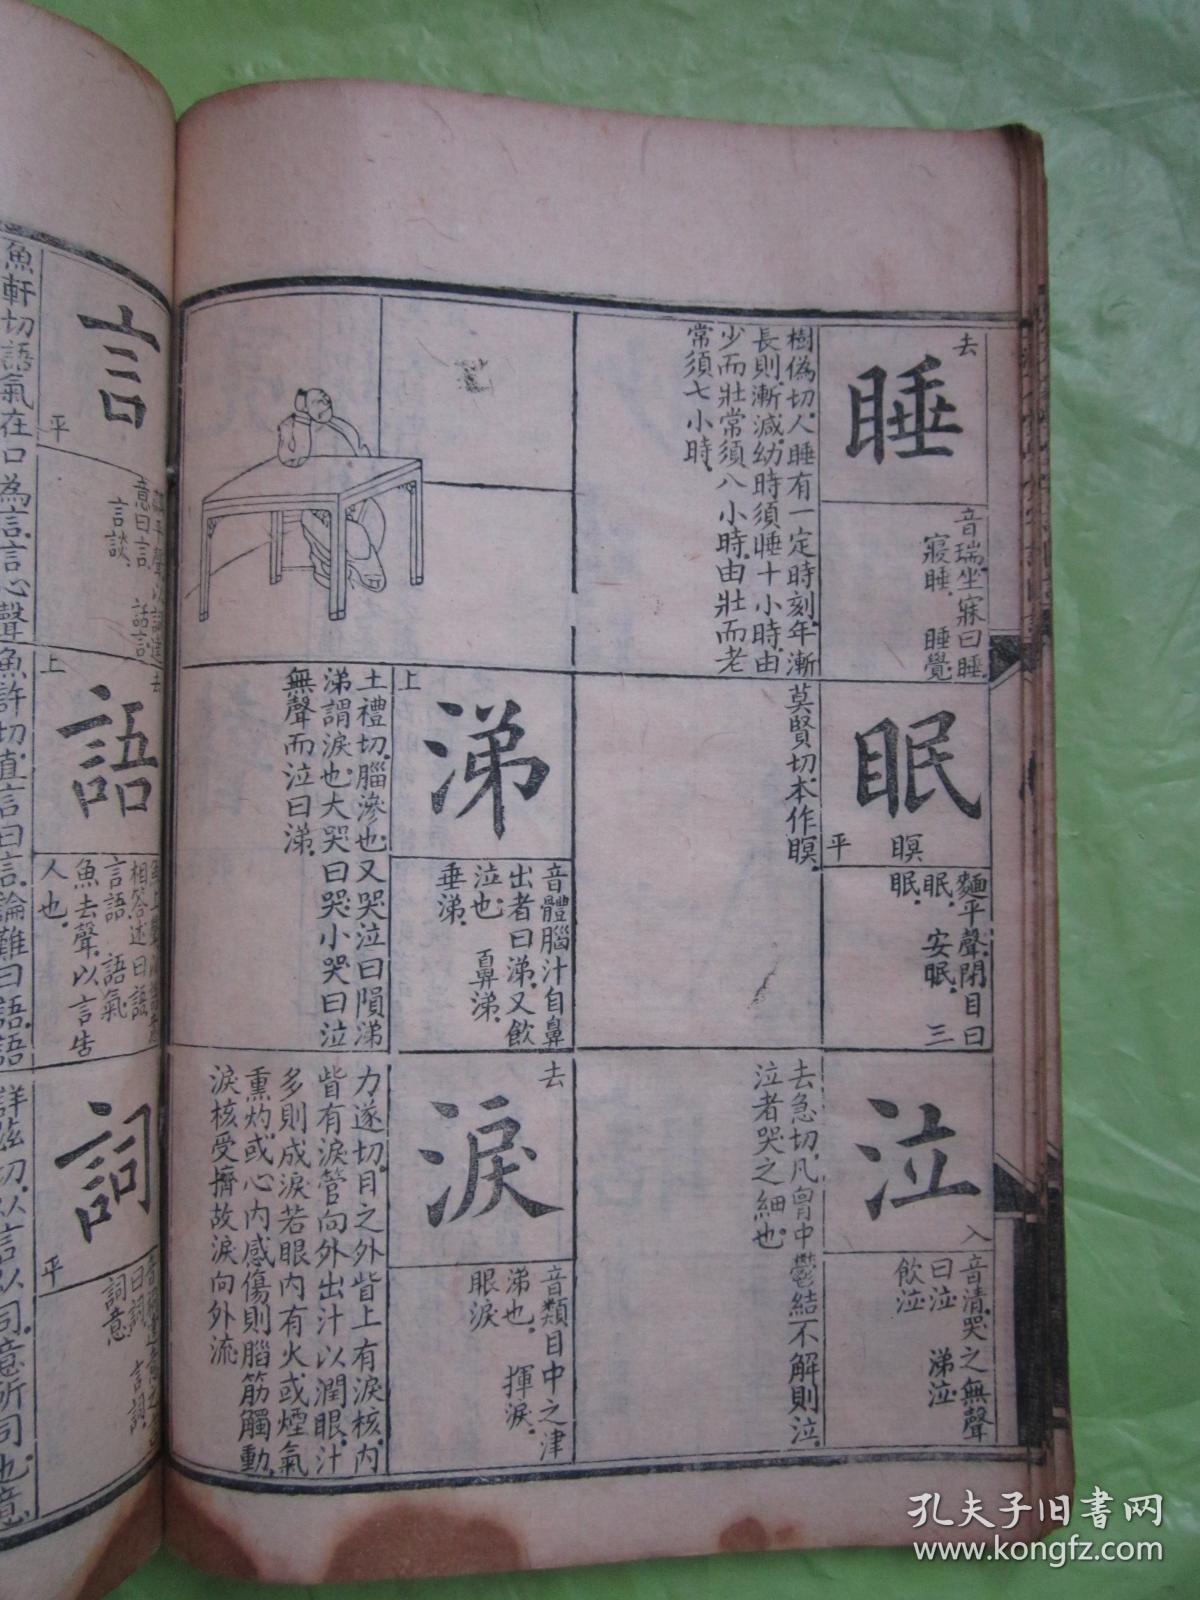 去
睡
音瑞坐寐曰睡
寢睡 睡覺
樹偽切人睡有一定時刻年漸
長則漸減幼時須睡十小時由
少而壯常須八小時由壯而老
常須七小時
眠
瞑
平
麵平聲閉目曰
眠 安眠 三
眠
莫賢切本作瞑
泣
入
音清哭之無聲
曰泣 涕泣
飲泣
去急切凡胷中鬱結不解則泣
泣者哭之細也
上
涕
音體腦汁自鼻
出者曰涕又飲
泣也 鼻涕
垂涕
土禮切腦滲也又哭泣曰隕涕
涕謂淚也大哭曰哭小哭曰泣
無聲而泣曰涕
去
淚
音類目中之津
涕也 揮淚
眼淚
力遂切目之外眥上有淚核內
眥有淚管向外出汁以潤眼汁
多則成淚若眼內有火或煙氣
熏灼或心內感傷則腦筋觸動
淚核受擠故淚向外流
言
平
意曰言 話言
言談
魚軒切語氣在口為言言心聲
去
語
上
相答述曰語
言語 語氣
魚去聲以言告
人也
魚許切直言曰言論難曰語語
詞
平
曰詞 言詞
詞意
詳茲切从言从司意所司也意
孔夫子旧书网
www.kongfz.com